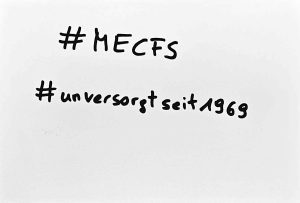 #MECFS
#unversorgtseit1969